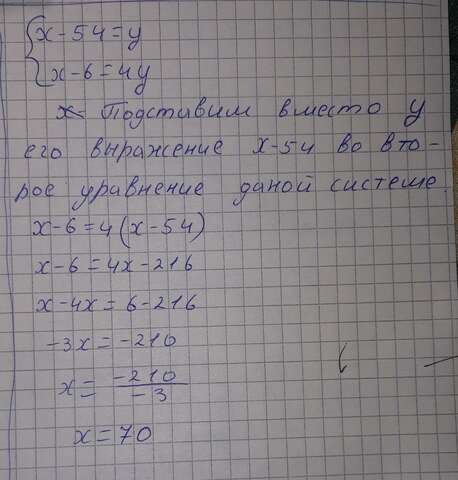 {x-54=y
x-6=4y
Подставим вместо y
его выражение x-54 во вто-
рое уравнение даной системе.
x-6=4(x-54)
x-6=4x-216
x-4x=6-216
-3x=-210
x=-210/-3
x=70